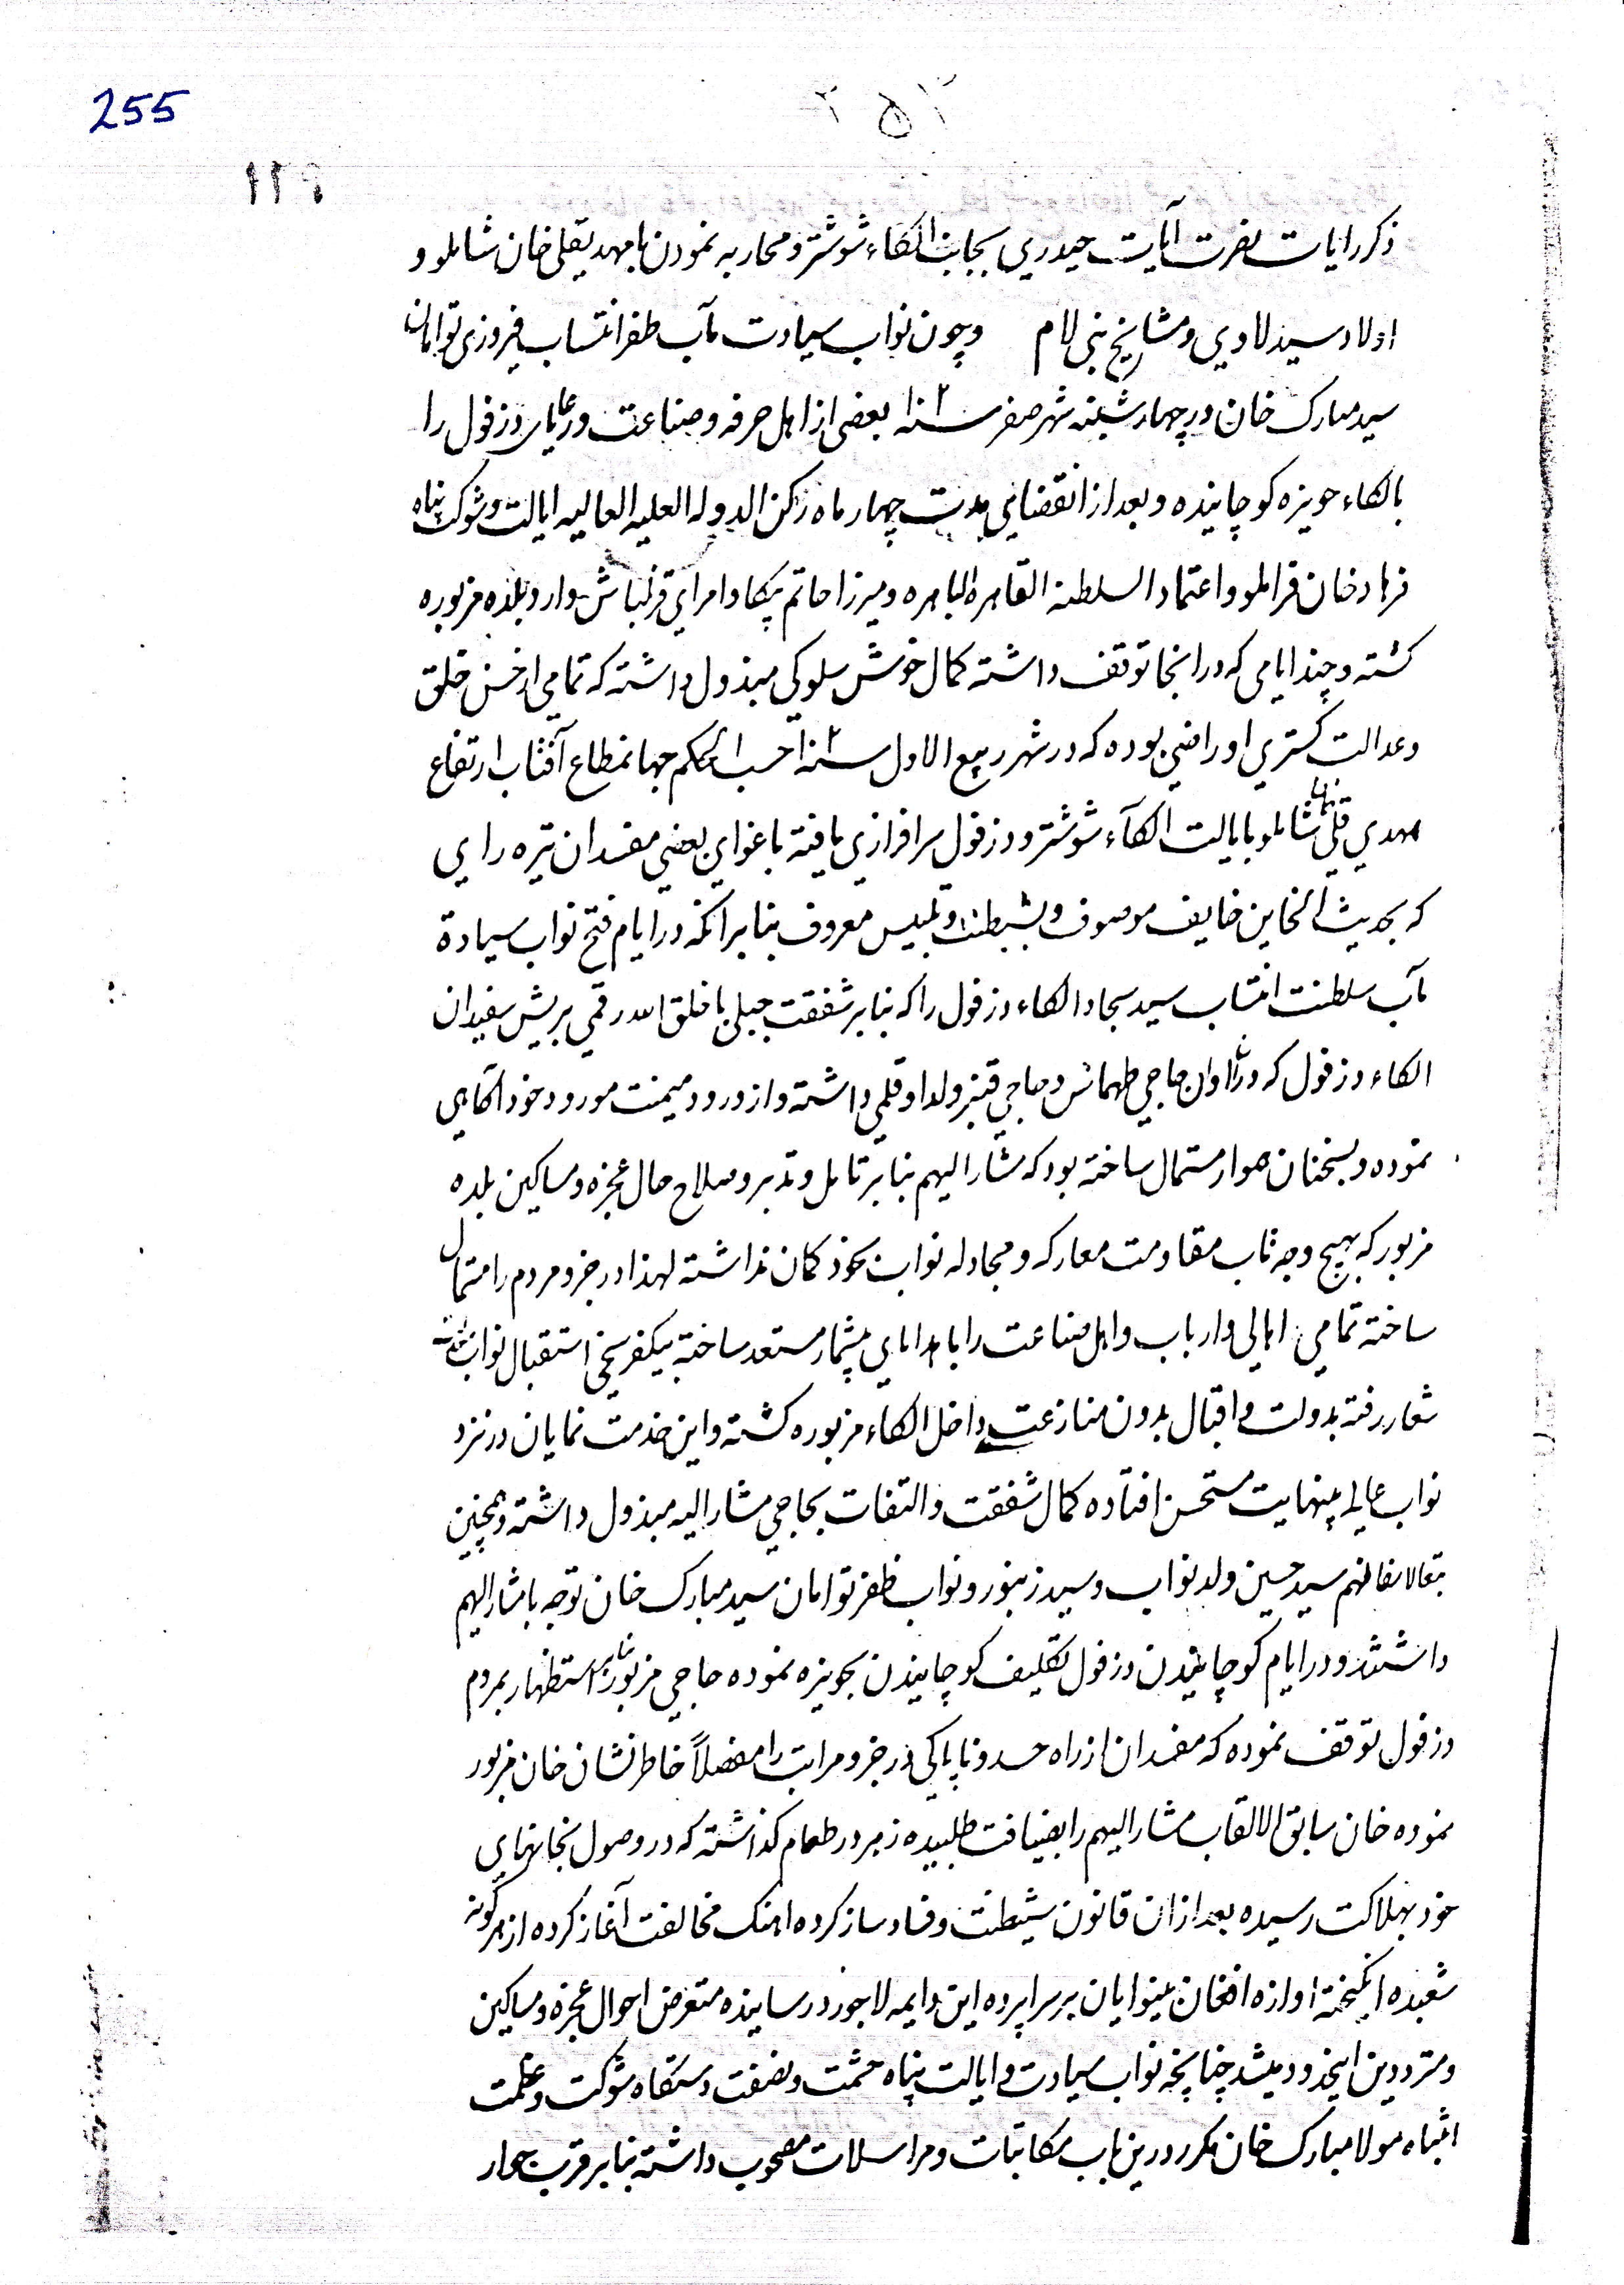 255
۲۵۲
۱۲۹
ذکر رایات نصرت آیات حیدری بجانب الکاء شوشتر و محاربه نمودن با مهدیقلی خان شاملو و
اولاد سید لاوی و مشایخ بنی لام و چون نواب سیادت مآب ظفر انتساب فیروزی توامان
سید مبارک خان در چهارشنبه شهر صفر سنه بعضی از اهل حرفه و صناعت و رعایای دزفول را
بالکاء حویزه کوچانیده و بعد از انقضای مدت چهار ماه رکن الدوله العلیه العالیه ایالت و شوکت پناه
فرهاد خان قرامملو و اعتماد السلطنه القاهره الباهره و میرزا حاتم بیکا و امرای قزلباش وارد بلده مزبوره
کشته و چند ایامی که در انجا توقف داشته کمال خوش سلوکی مبذول داشته که تمامی از حسن خلق
و عدالت کستری او راضی بوده که در شهر ربیع الاول سنه حسب الحکم جهانمطاع آفتاب ارتفاع
مهدی قلی خان شاملو بایالت الکآء شوشتر و دزفول سرافرازی یافته باغوای بعضی مفسدان تیره رای
که بحدیث الخاین خایف موصوف و بشیطنت و تلبیس معروف بنابر انکه در ایام فتح نواب سیادة
مآب سلطنت انتساب سید سجاد الکاء دزفول را که بنابر شفقت جبلی با خلق الله رقمی بریش سفیدان
الکاء دزفول که در ان اوان حاجی طهماس و حاجی قنبر ولد او قلمی داشته و از ورود میمنت مورود خود اکاهی
نموده و بسخنان هموار مستمال ساخته بود که مشار الیهم بنابر تامل و تدبر و صلاح حال عجزه و مساکین بلده
مزبور که بهیچ وجه تاب مقاومت معارکه و مجادله نواب بخود کمان نداشته لهذا در جزو مردم را مستمال
ساخته تمامی اهالی و ارباب و اهل صناعت را با هدایای بیشمار مستعد ساخته بیکفرسخی استقبال نواب
شعار رفته بدولت و اقبال بدون منازعت داخل الکاء مزبوره کشته و این خدمت نمایان در نزد
نواب عالی بینهایت مستحسن افتاده کمال شفقت و التفات بحاجی مشار الیه مبذول داشته و همچنین
سید حسین ولد نواب و سید زنبور و نواب ظفر توامان سید مبارک خان توجه با مشار الیهم
داشتند و در ایام کوچانیدن دزفول تکلیف کوچانیدن بحویزه نموده حاجی مزبور بنابر استظهار بمردم
دزفول توقف نموده که مفسدان از راه حسد و ناپاکی در جزو مراتب را مفصلاً خاطر نشان خان مزبور
نموده خان سابق الالقاب مشار الیهم را بضیافت طلبیده زهر در طعام کذاشته که در وصول بخانهای
خود بهلاکت رسیده بعد از ان قانون شیطنت و فساد ساز کرده اهنک مخالفت آغاز کرده از هر کونه
شعبده انکیخته اوازه افغان بینوایان بر سراپرده این دایمه لاجورد رسانیده متعرض احوال عجزه و مساکین
و مترددین اینحدود میشد چنانچه نواب سیادت و ایالت پناه حشمت و نصفت دستکاه شوکت و عظمت
انتباه مولا مبارک خان مکرر درین باب مکاتبات و مراسلات مصحوب داشته بنابر قرب جوار